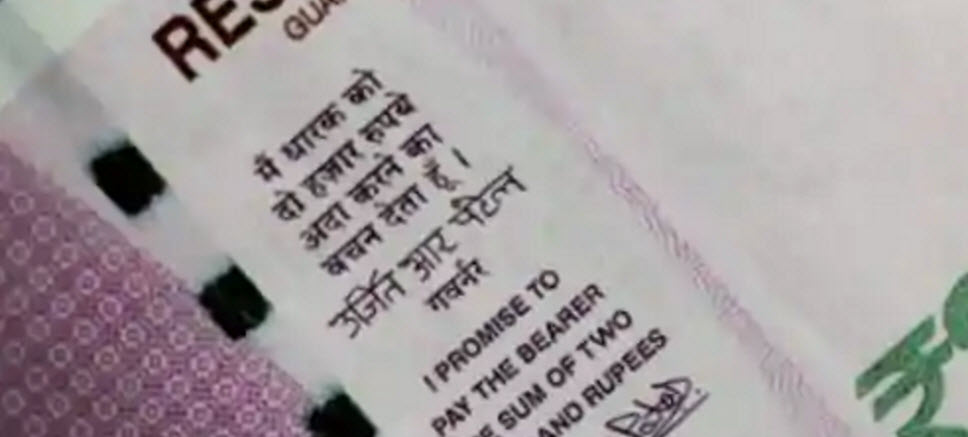 RES
GUA
मैं धारक को
दो हज़ार रुपये
अदा करने का
वचन देता हूँ।
उर्जित आर पटेल
गवर्नर
I PROMISE TO
PAY THE BEARER
SUM OF TWO
AND RUPEES